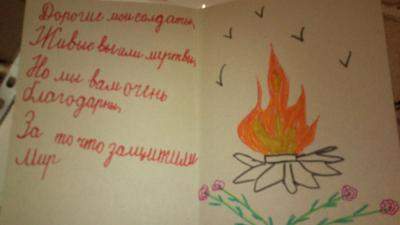 Дорогие мои солдаты,
Живые вы али мертвы,
Но мы вам очень
благодарны,
За то что защитили
Мир